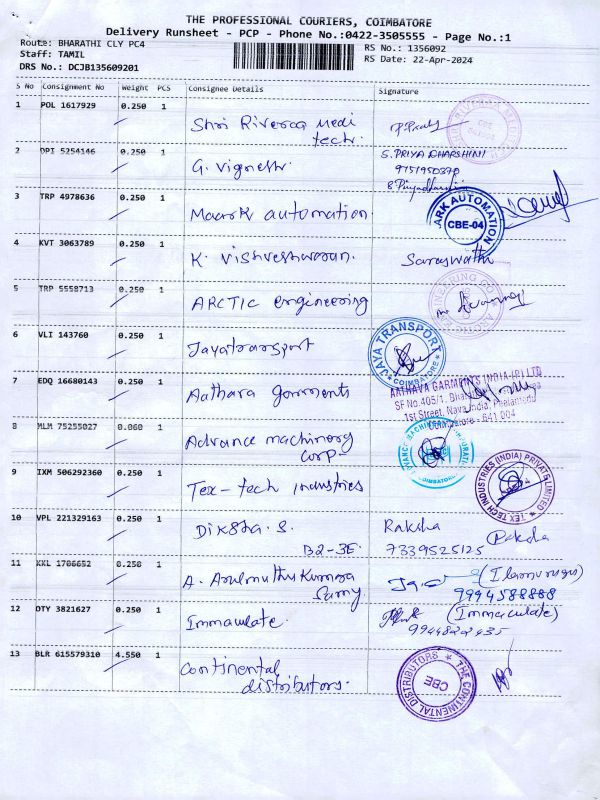 THE PROFESSIONAL COURIERS, COIMBATORE
Delivery Runsheet - PCP - Phone No.:0422-3505555 - Page No.:1
Route: BHARATHI CLY PC4
RS No.: 1356092
Staff: TAMIL
RS Date: 22-Apr-2024
DRS No.: DCJB135609201
S No Consignment No Weight PCS Consignee Details Signature
1 POL 1617929 0.250 1
Shri Riveraa medi
tech.
2 DPI 5254146 0.250 1
G. Vignesh.
S. PRIYA DHARSHINI
9751950370
S. Priyadharshini
3 TRP 4978636 0.250 1
Maark automation
ARK AUTOMATION
CBE-04
4 KVT 3063789 0.250 1
K. Vishveshwaran.
Saraswathi
5 TRP 5558713 0.250 1
ARCTIC engineering
6 VLI 143760 0.250 1
Jayatransport
JAYA TRANSPORT
COIMBATORE
7 EDQ 16680143 0.250 1
Aathava garments
AATHAVA GARMENTS (INDIA-(P) LTD
SF No.405/1,
1st Street, Nava India, Peelamedu
Coimbatore - 641 004
8 MLM 75255027 0.060 1
Advance machinery
corp.
9 IXM 506292360 0.250 1
Tex-tech industries
TEX TECH INDUSTRIES (INDIA) PRIVATE LIMITED
10 VPL 221329163 0.250 1
Diksha. S.
B2-3E
Raksha
7339525125
11 KKL 1706652 0.250 1
A. Arulmuthu Kumara
Samy.
9994588888
12 OTY 3821627 0.250 1
Immaculate.
(Immaculate)
13 BLR 615579310 4.550 1
Continental
distributors.
THE CONTINENTAL DISTRIBUTORS
CBE